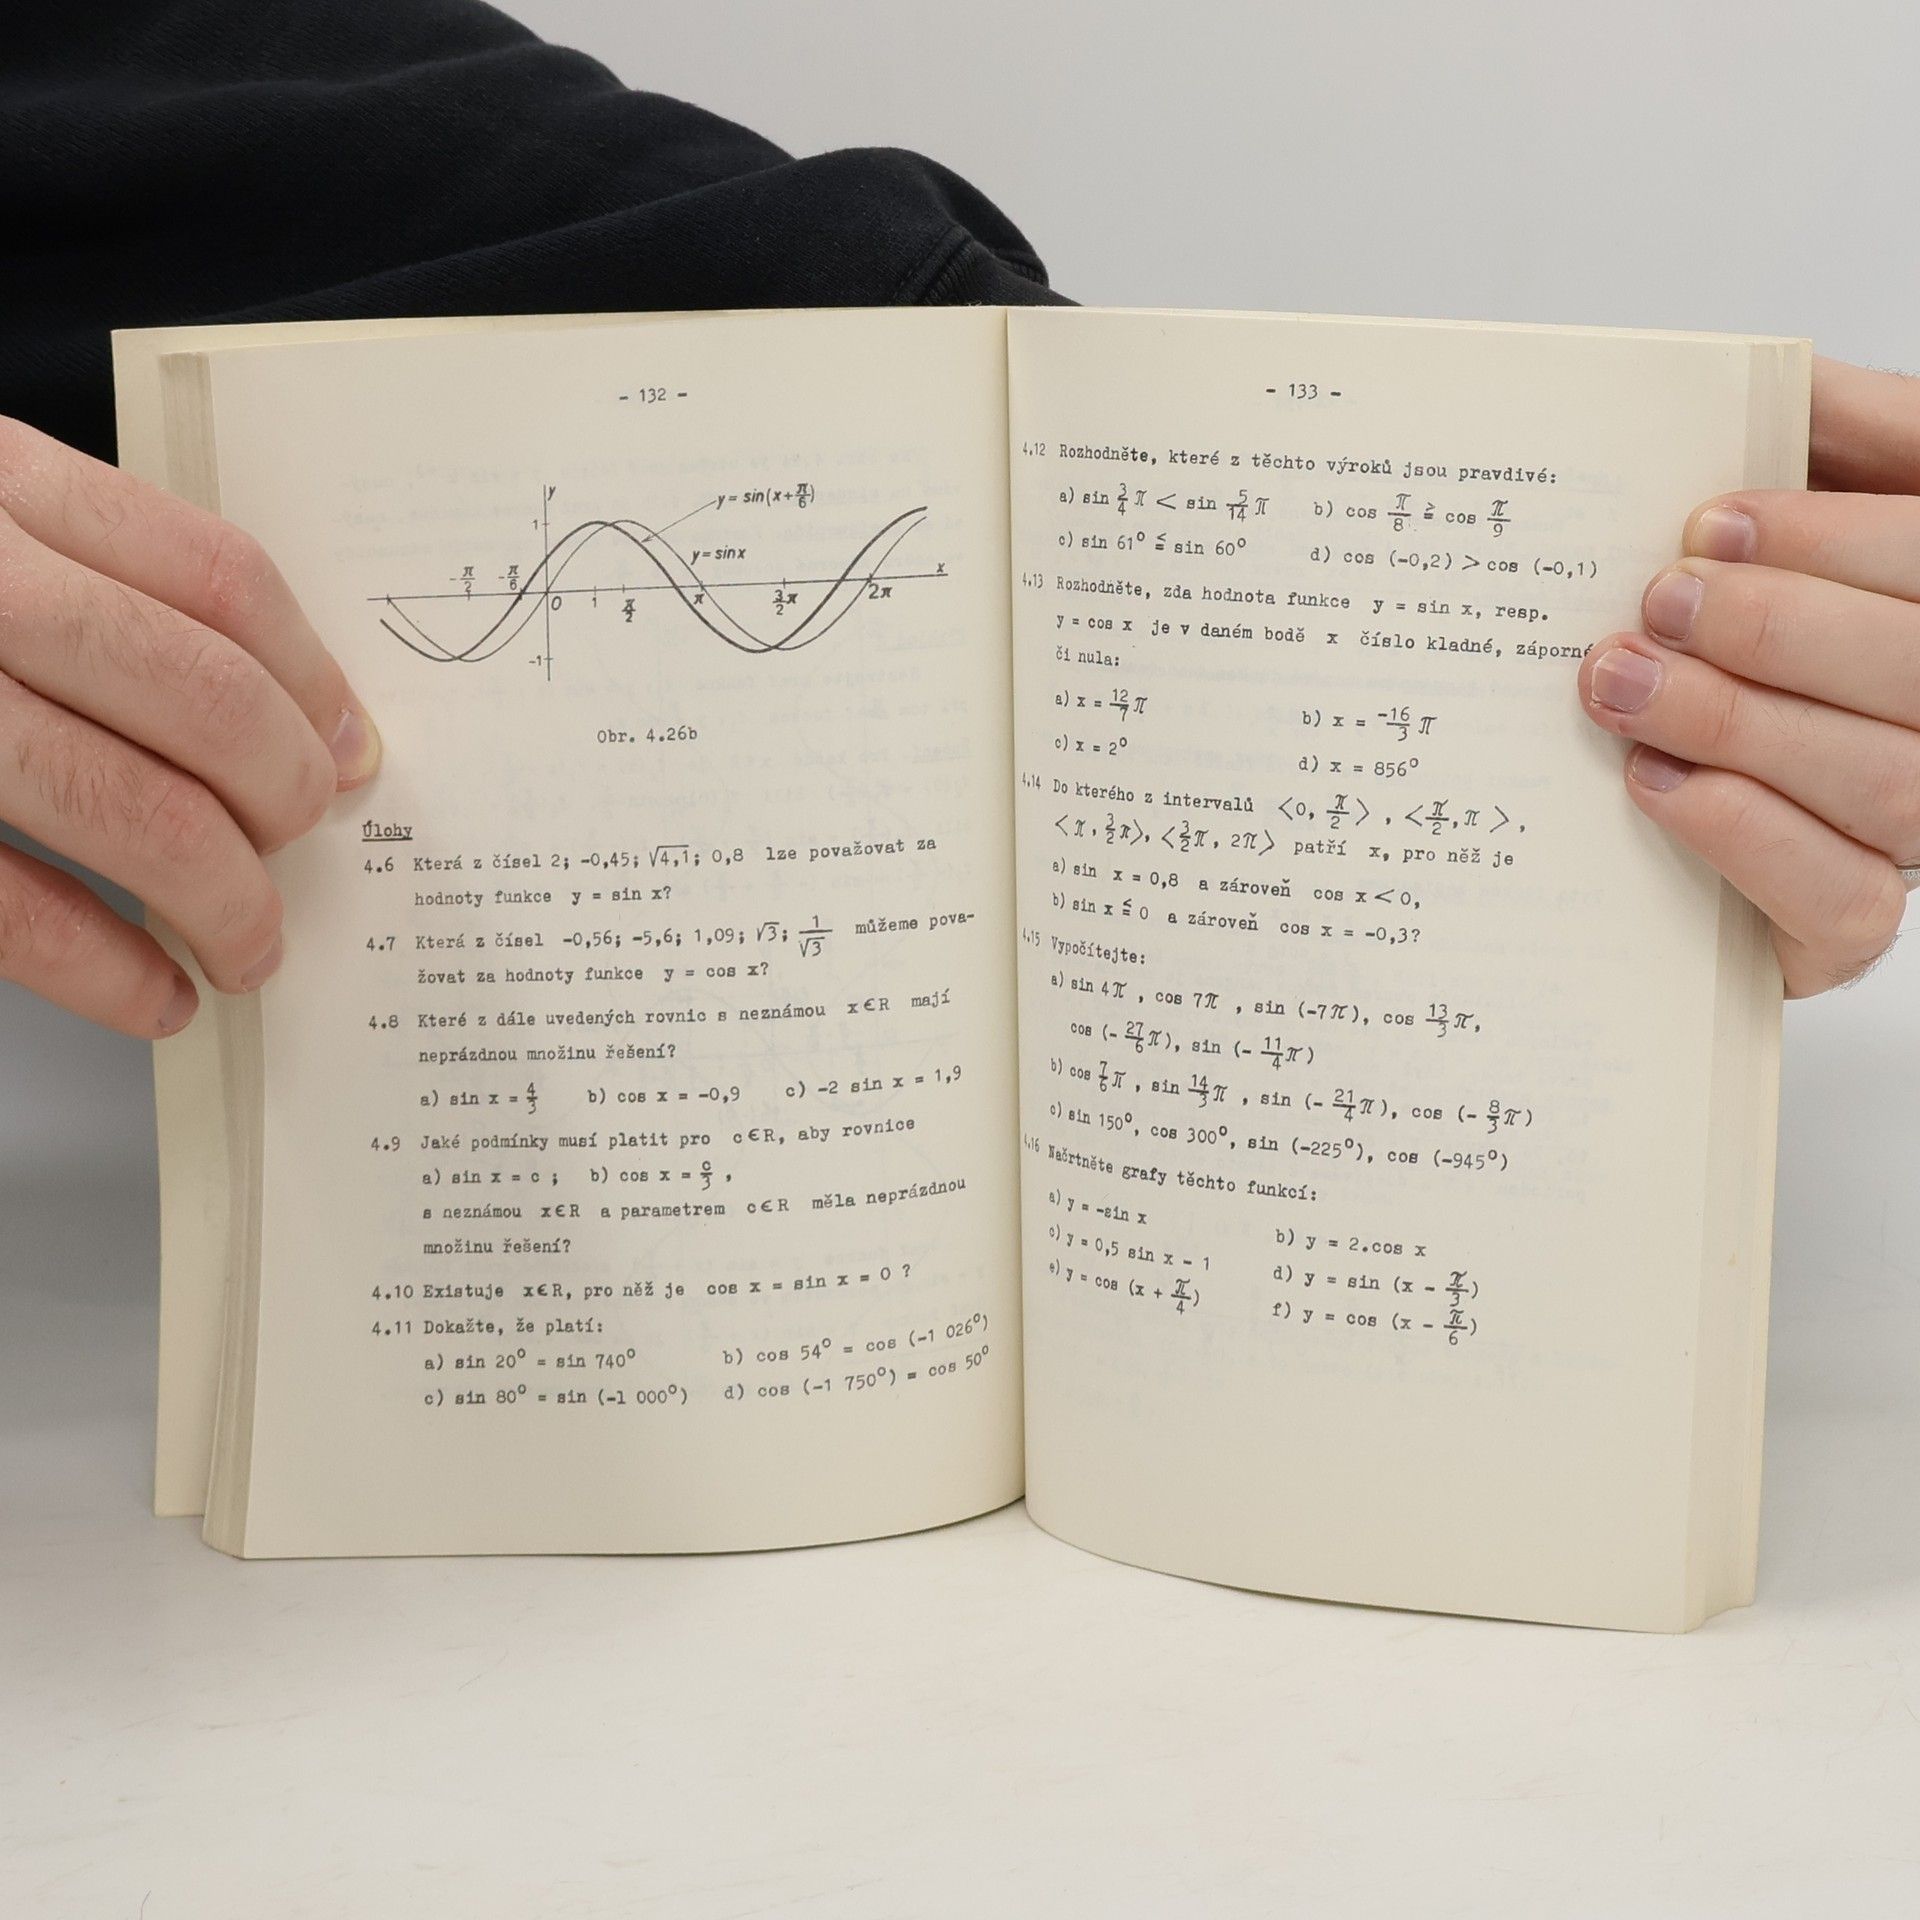 - 132 -
y
y = sin(x+π/6)
1
y = sin x
-π/2 -π/6 0 1 π/2 π 3/2 π 2π x
-1
Obr. 4.26b
Úlohy
4.6 Která z čísel 2; -0,45; √4,1; 0,8 lze považovat za
hodnoty funkce y = sin x?
4.7 Která z čísel -0,56; -5,6; 1,09; √3; 1/√3 můžeme pova-
žovat za hodnoty funkce y = cos x?
4.8 Které z dále uvedených rovnic s neznámou x∈R mají
neprázdnou množinu řešení?
a) sin x = 4/3 b) cos x = -0,9 c) -2 sin x = 1,9
4.9 Jaké podmínky musí platit pro c∈R, aby rovnice
a) sin x = c ; b) cos x = c/3 ,
s neznámou x∈R a parametrem c∈R měla neprázdnou
množinu řešení?
4.10 Existuje x∈R, pro něž je cos x = sin x = 0 ?
4.11 Dokažte, že platí:
a) sin 20° = sin 740° b) cos 54° = cos (-1 026°)
c) sin 80° = sin (-1 000°) d) cos (-1 750°) = cos 50°
- 133 -
4.12 Rozhodněte, které z těchto výroků jsou pravdivé:
a) sin 3/4 π < sin 5/14 π b) cos π/8 ≧ cos π/9
c) sin 61° ≦ sin 60° d) cos (-0,2) > cos (-0,1)
4.13 Rozhodněte, zda hodnota funkce y = sin x, resp.
y = cos x je v daném bodě x číslo kladné, záporné
či nula:
a) x = 12/7 π b) x = -16/3 π
c) x = 2° d) x = 856°
4.14 Do kterého z intervalů <0, π/2> , <π/2, π> ,
<π, 3/2 π>, <3/2 π, 2π> patří x, pro něž je
a) sin x = 0,8 a zároveň cos x < 0,
b) sin x ≦ 0 a zároveň cos x = -0,3?
4.15 Vypočítejte:
a) sin 4π , cos 7π , sin (-7π), cos 13/3 π,
cos (- 27/6 π), sin (- 11/4 π)
b) cos 7/6 π , sin 14/3 π , sin (- 21/4 π), cos (- 8/3 π)
c) sin 150°, cos 300°, sin (-225°), cos (-945°)
4.16 Načrtněte grafy těchto funkcí:
a) y = -sin x b) y = 2.cos x
c) y = 0,5 sin x - 1 d) y = sin (x - π/3)
e) y = cos (x + π/4) f) y = cos (x - π/6)